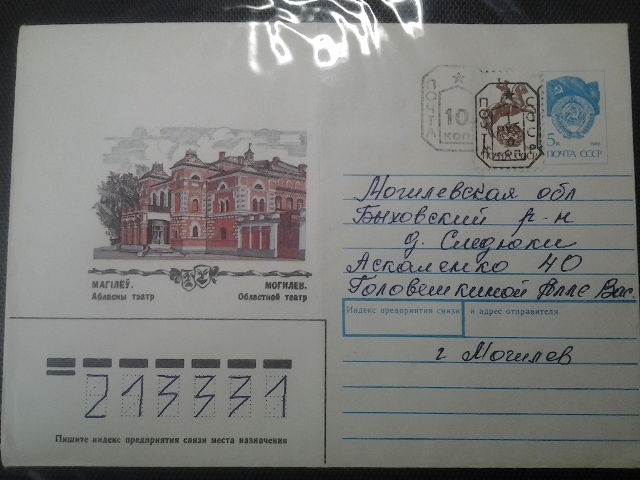 ПОЧТА
10
КОП.
ПОЧТА
СССР
ПОЧТА СССР
5к
1988
ПОЧТА СССР
Могилевская обл
Быховский р-н
д. Следюки
Аскаленко 40
Головешкиной Алле Вас.
МАГІЛЁЎ.
Абласны тэатр
МОГИЛЕВ.
Областной театр
Индекс предприятия связи и адрес отправителя
г Могилев
213331
Пишите индекс предприятия связи места назначения